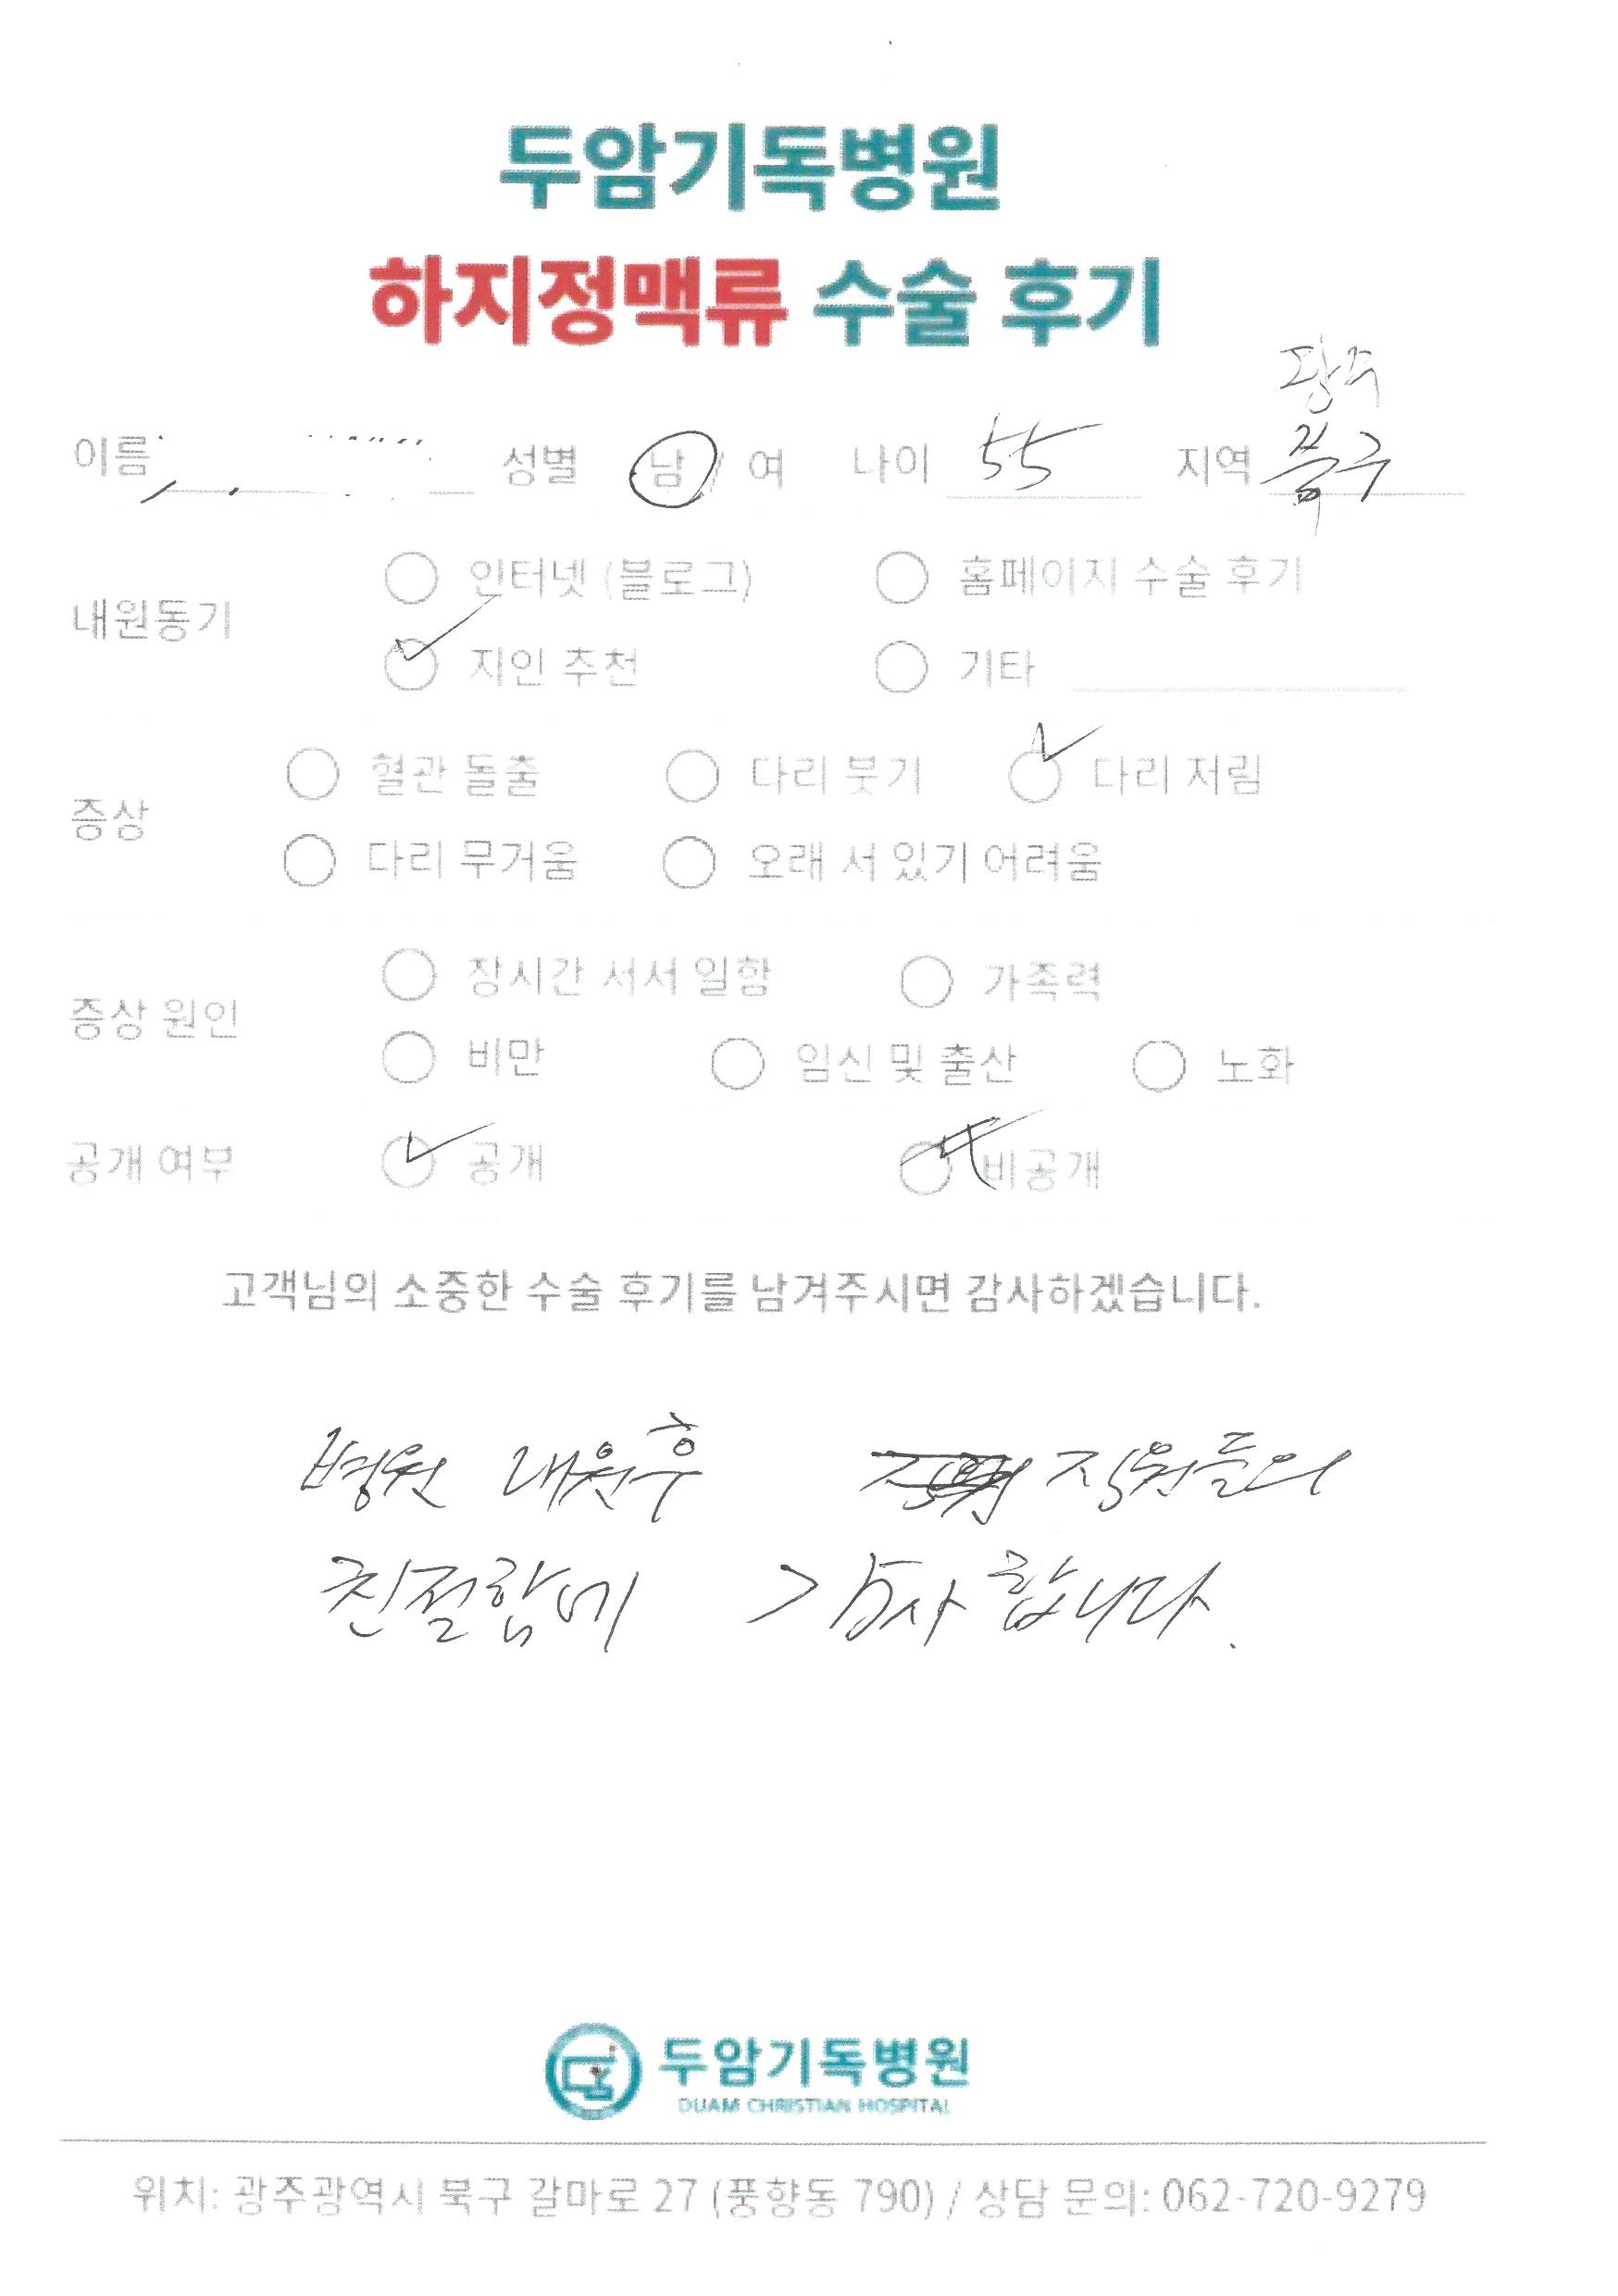 두암기독병원
하지정맥류 수술 후기
광주
이름 성별 남 / 여 나이 55 지역 북구
인터넷 (블로그) 홈페이지 수술 후기
내원동기
지인 추천 기타
혈관 돌출 다리 붓기 다리 저림
증상
다리 무거움 오래 서 있기 어려움
장시간 서서 일함 가족력
증상 원인
비만 임신 및 출산 노화
공개 여부 공개 비공개
고객님의 소중한 수술 후기를 남겨주시면 감사하겠습니다.
병원 내원후 직원들의
친절함에 감사합니다.
두암기독병원
DUAM CHRISTIAN HOSPITAL
위치: 광주광역시 북구 갈마로 27 (풍향동 790) / 상담 문의: 062-720-9279